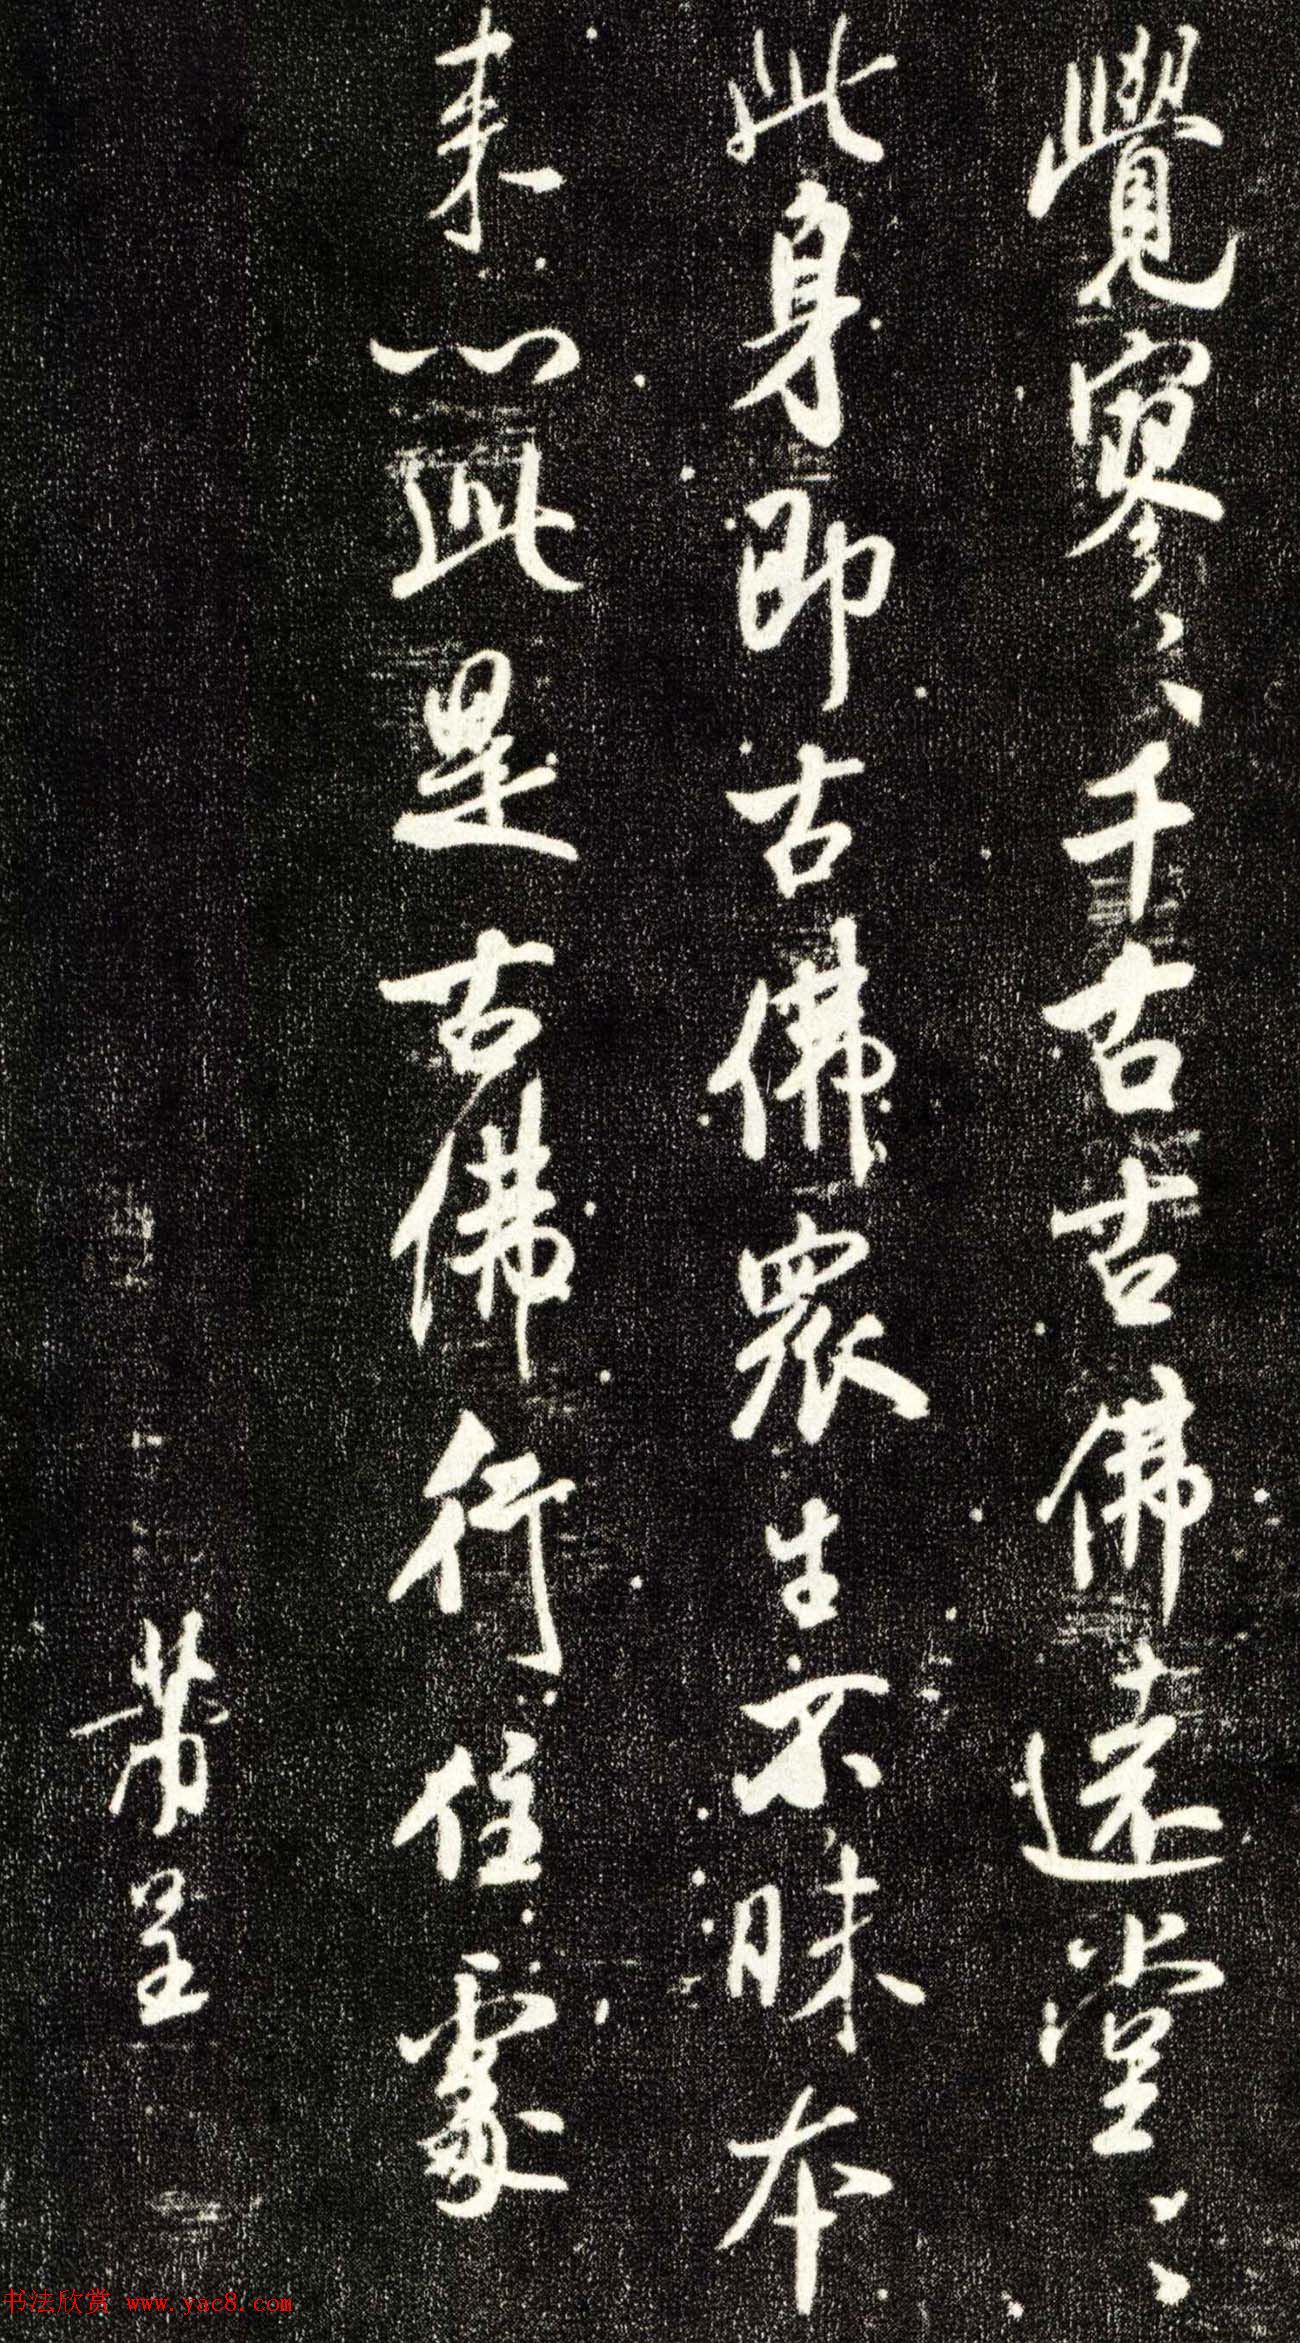 覺寥〻千古古佛遠堂〻
此身即古佛眾生不昧本
来心此是古佛行住處
芾呈
书法欣赏 www.yac8.com